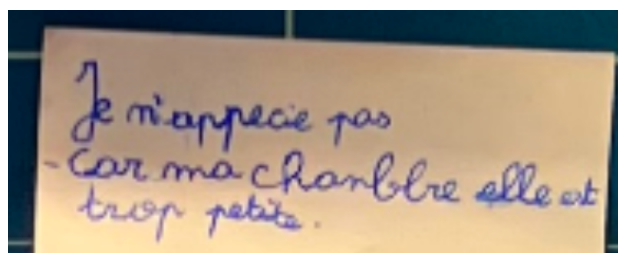 Je n'appecie pas
- Car ma chanbbre elle est
trop petite.